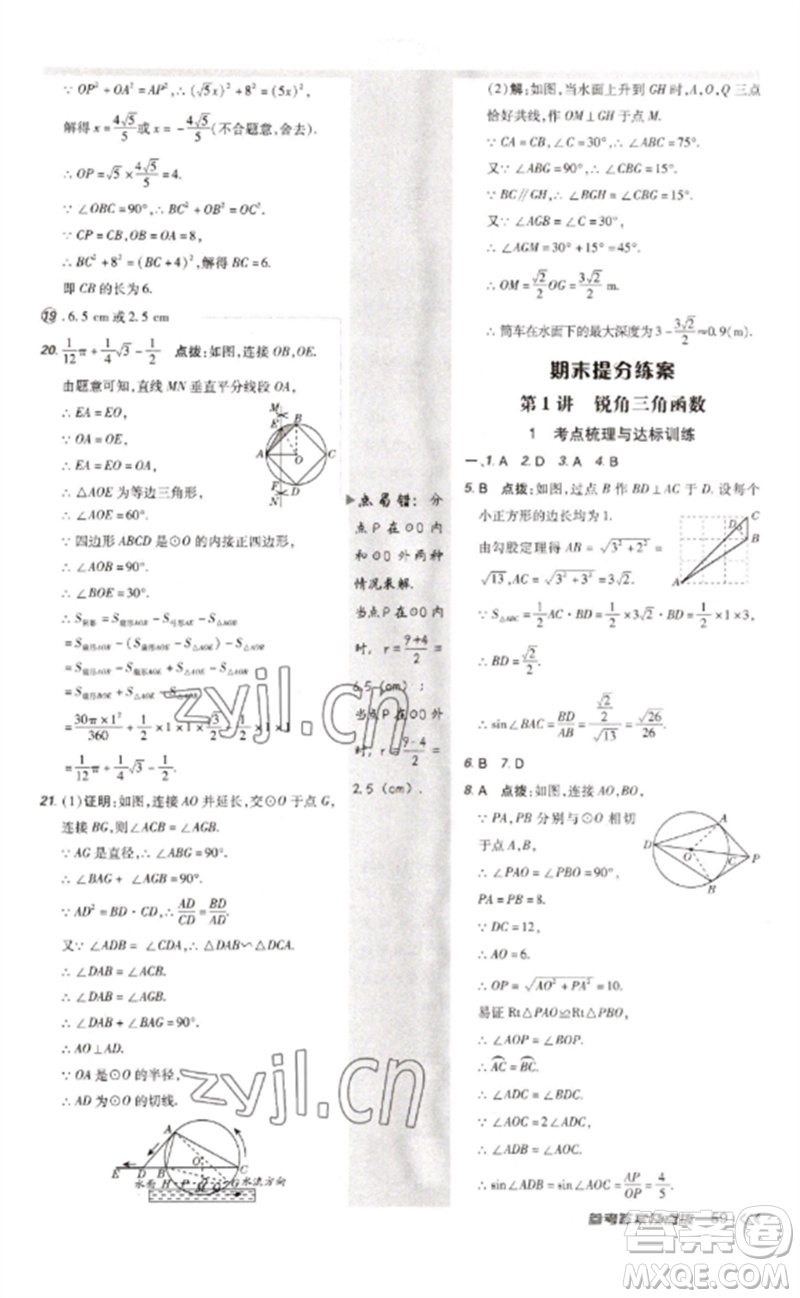 ∵ OP²+OA²=AP²,∴(√5x)²+8²=(5x)².
解得 x=4√5/5或 x=-4√5/5(不合题意,舍去).
∴ OP=√5×4√5/5=4.
∵ ∠OBC=90°,∴ BC²+OB²=OC².
∵ CP=CB,OB=OA=8,
∴ BC²+8²=(BC+4)²,解得 BC=6.
即 CB 的长为 6.
19. 6.5 cm 或 2.5 cm
20. 1/12π+1/4√3-1/2 点拨:如图,连接 OB,OE.
由题意可知,直线 MN 垂直平分线段 OA,
∴ EA=EO,
∵ OA=OE,
∴ EA=EO=OA,
∴ △AOE 为等边三角形,
∴ ∠AOE=60°.
∵ 四边形 ABCD 是⊙O 的内接正四边形,
∴ ∠AOB=90°.
∴ ∠BOE=30°.
∴ S阴影=S扇形AOB-S弓形AE-S△AOB
=S扇形AOB-(S扇形AOE-S△AOE)-S△AOB
=S扇形AOB-S扇形AOE+S△AOE-S△AOB
=S扇形BOE+S△AOE-S△AOB
=30π×1²/360+1/2×1×√3/2-1/2×1×1
=1/12π+1/4√3-1/2.
M
E
B
A
O
C
F
D
N
21. (1)证明:如图,连接 AO 并延长,交⊙O 于点 G,
连接 BG,则∠ACB=∠AGB.
∵ AG 是直径,∴ ∠ABG=90°.
∴ ∠BAG+ ∠AGB=90°.
∵ AD²=BD·CD,∴ AD/CD=BD/AD.
又∵ ∠ADB=∠CDA,∴ △DAB∽△DCA.
∴ ∠DAB=∠ACB.
∴ ∠DAB=∠AGB.
∴ ∠DAB+ ∠BAG=90°.
∴ AO⊥AD.
∵ OA 是⊙O 的半径,
∴ AD 为⊙O 的切线.
A
O
E
D
B
C
水面
H
M
G
水流方向
点易错:分
点 P 在⊙O 内
和⊙O 外两种
情况求解.
当点 P 在⊙O 内
时, r=9+4/2=
6.5 (cm);
当点 P 在⊙O 外
时, r=9-4/2=
2.5 (cm).
(2)解:如图,当水面上升到 GH 时,A,O,Q 三点
恰好共线,作 OM⊥GH 于点 M.
∵ CA=CB,∠C=30°,∴ ∠ABC=75°.
又∵ ∠ABG=90°,∴ ∠CBG=15°.
∵ BC∥GH,∴ ∠BGH=∠CBG=15°.
又∵ ∠AGB=∠C=30°,
∴ ∠AGM=30°+15°=45°.
∴ OM=√2/2OG=3√2/2 m.
∴ 筒车在水面下的最大深度为 3-3√2/2≈0.9(m).
期末提分练案
第 1 讲 锐角三角函数
1 考点梳理与达标训练
一、1. A 2. D 3. A 4. B
5. B 点拨:如图,过点 B 作 BD⊥AC 于 D. 设每个
小正方形的边长均为 1.
由勾股定理得 AB=√3²+2²=
√13,AC=√3²+3²=3√2.
∵ S△ABC=1/2AC·BD=1/2×3√2·BD=1/2×1×3,
∴ BD=√2/2.
∴ sin∠BAC=BD/AB=√2/2/√13=√26/26.
C
D
B
A
6. B 7. D
8. A 点拨:如图,连接 AO,BO,
∵ PA,PB 分别与⊙O 相切
于点 A,B,
∴ ∠PAO=∠PBO=90°,
PA=PB=8.
∵ DC=12,
∴ AO=6.
∴ OP=√AO²+PA²=10.
易证 Rt△PAO≌Rt△PBO,
∴ ∠AOP=∠BOP.
∴ AC=BC.
∴ ∠AOC=∠BOC.
∵ ∠AOC=2∠ADC,
∴ ∠ADB=∠AOC.
∴ sin∠ADB=sin∠AOC=AP/OP=4/5.
A
D
O
C
P
B
zyjl.cn
zyjl.cn
59
答案圈
MXQE.COM